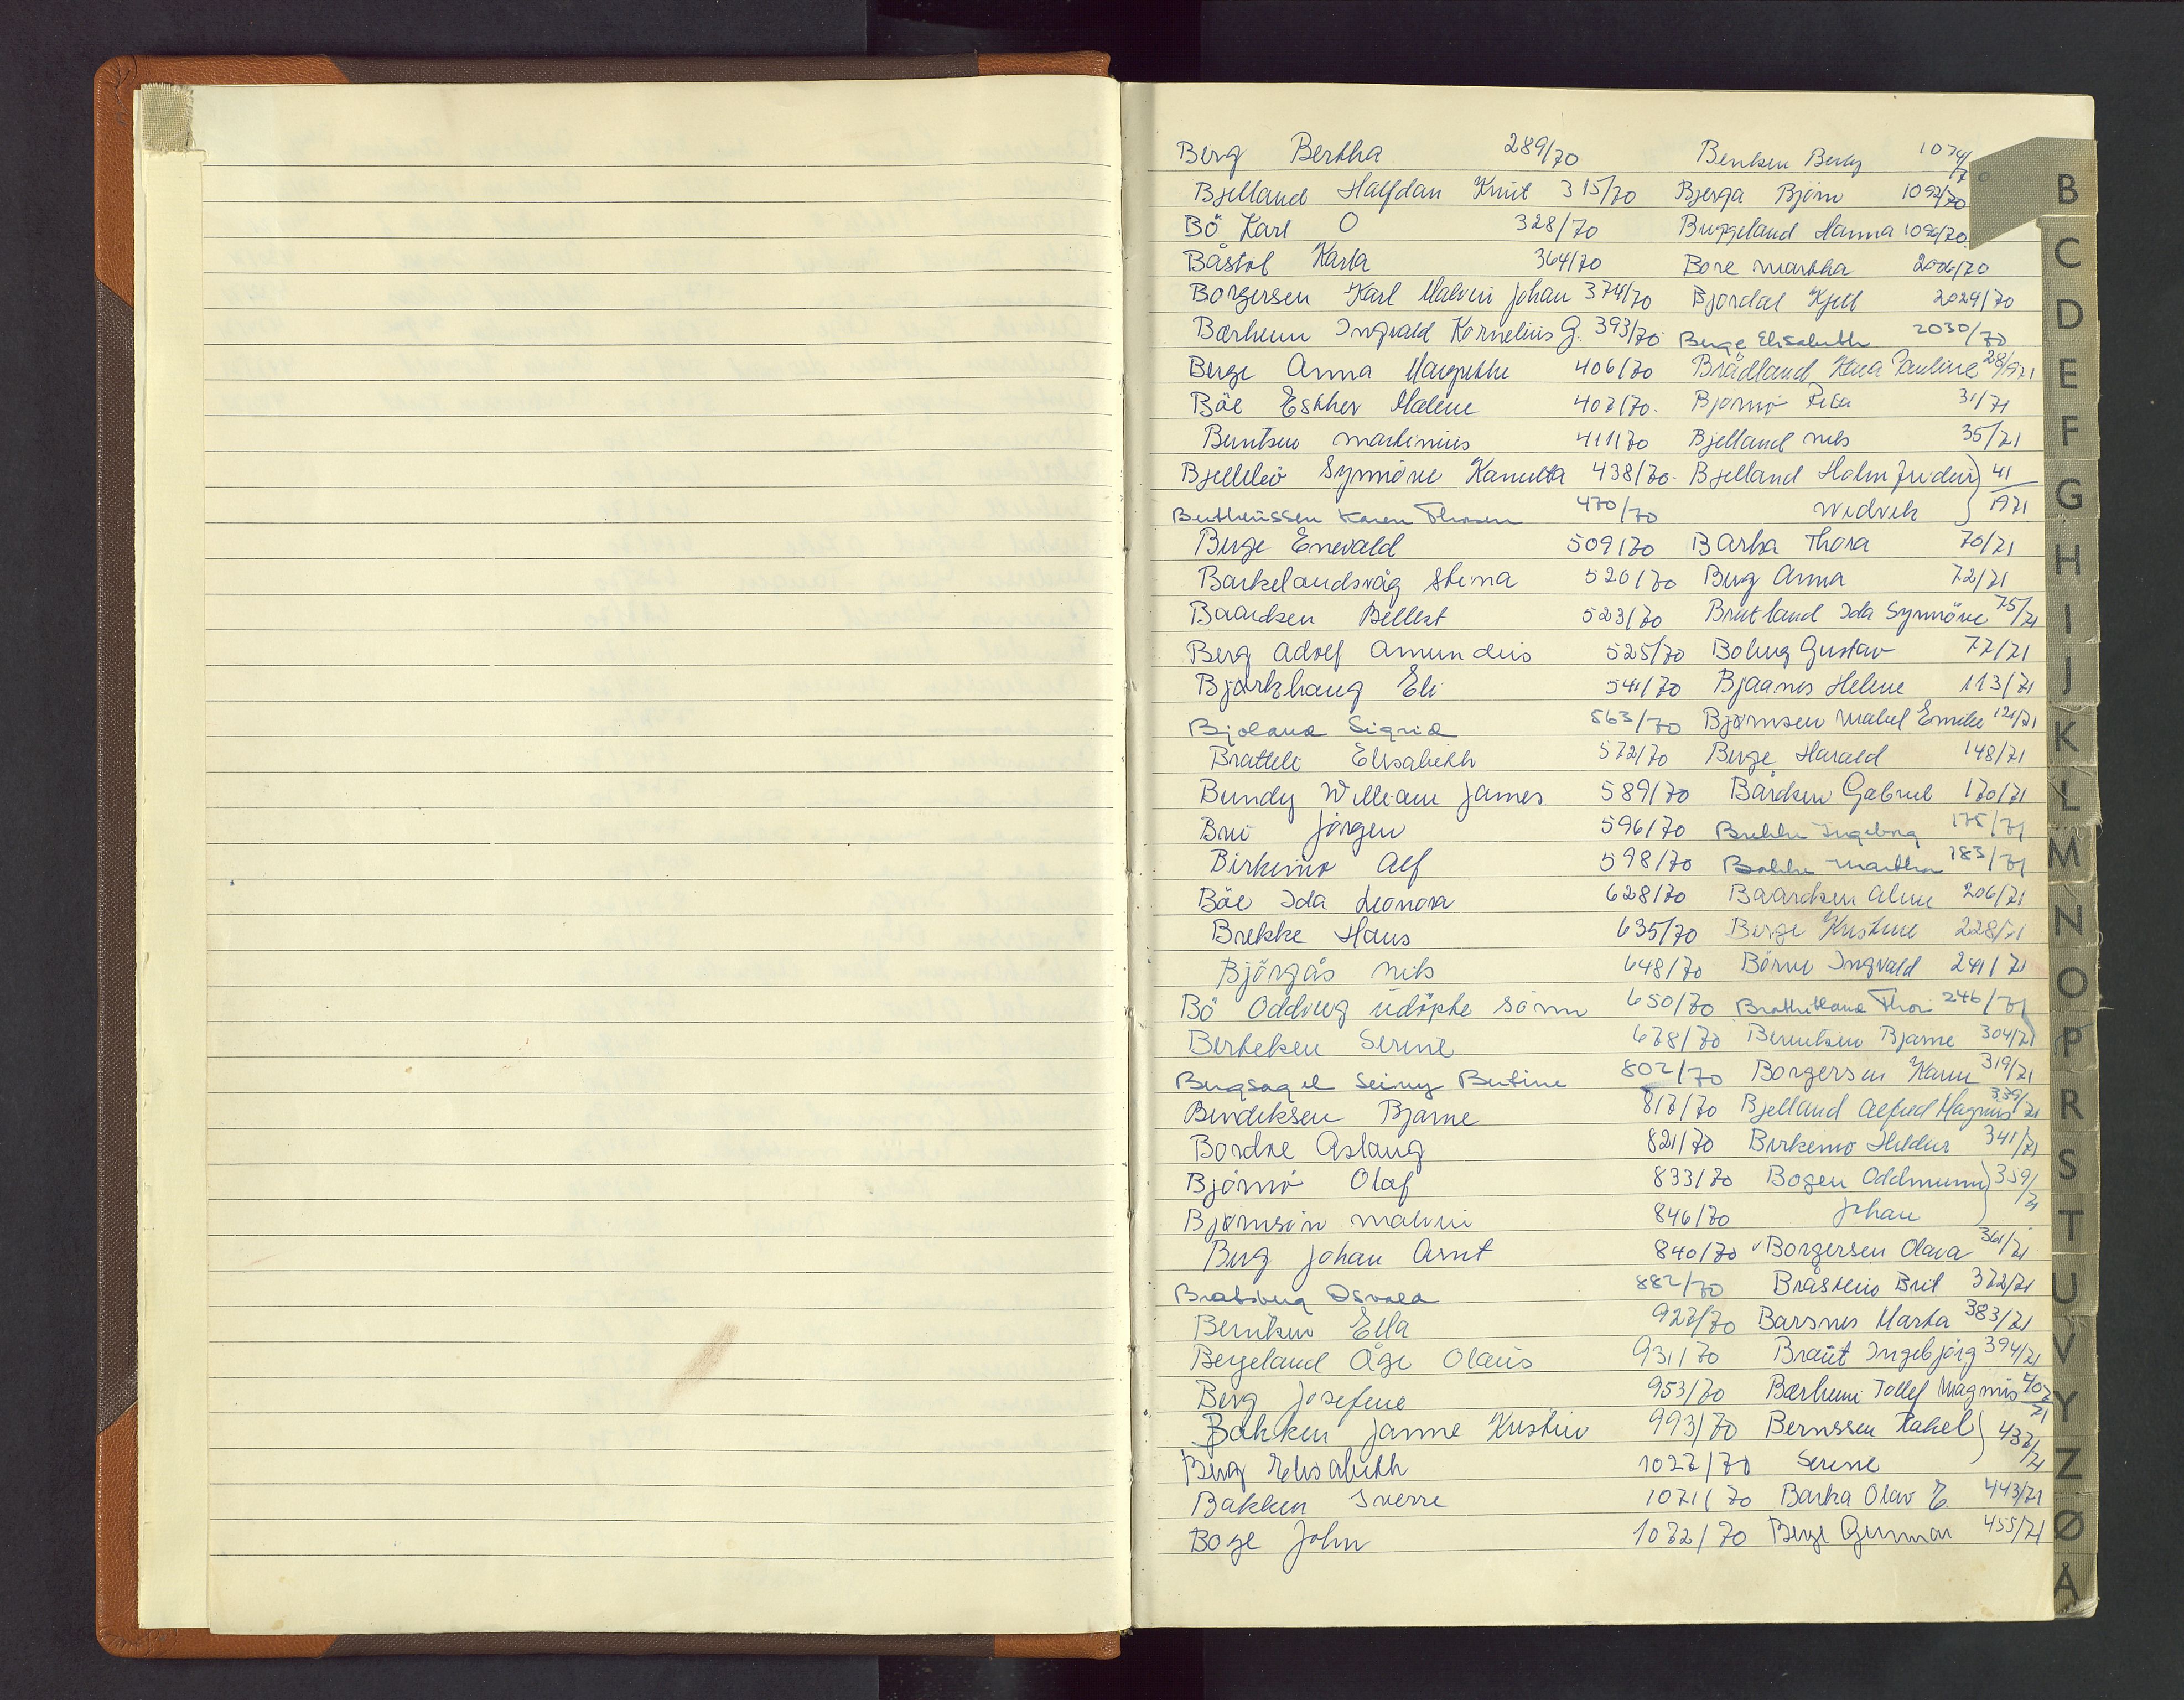 Berg Bertha 289/70
Bjelland Halfdan Knut 315/70
Bö Karl O 328/70
Båstøl Karla 364/70
Borgersen Karl Malvin Johan 374/70
Bærheim Ingvald Kornelius G. 393/70
Berge Anna Margrethe 406/70
Böe Esther Malene 407/70.
Berntsen Martinius 411/70
Synnöve 438/70.
Karen 470/70
Berge Enevald 509/70
Barkelandsvåg Stina 520/70
Baardsen Bellest 523/70
Berg Adolf Amundus 525/70
Bjørkhaug Eli 541/70
Bjoland Sigrid 563/70
Bratteli Elisabeth 572/70
Bundy William James 589/70
Bru Jörgen 596/70
Birkemo Alf 598/70
Böe Ida Leonora 628/70
Brekke Hans 635/70
Björgås Nils 648/70
Bö Oddveig udöpte sönn 650/70
Serine 678/70
802/70
Bendiksen Bjarne 817/70
Aslaug 821/70
Björnö Olaf 833/70
846/70
Berg Johan Arnt 840/70
Bratsberg Osvald 882/70
Berntsen Ella 927/70
Bergeland Åge Olaus 931/70
Berg Josefine 953/70
Bakken Janne Kristin 993/70
Berg Elisabeth 1027/70
Bakken Sverre 1071/70
Boge John 1072/70
Bentsen 1074/70
Bjerga Björn 1092/70
Hanna 1094/70
Bore Martha 2006/70
Bjordal Kjell 2029/70
Berge Elisabeth 2030/70
Brådland Pauline 28/1971
Björnö 31/71
Bjelland Nils 35/71
Bjelland Holmfridur 41/1971
Widvik
Barka Thora 70/71
Berg Anna 72/71
Ida Synnöve 75/71
Gustav 77/71
Bjaanes Helene 113/71
Bjørnsen Mabel Emilie 121/71
Berge Harald 148/71
Bårdsen Gabriel 170/71
Brekke Ingeborg 175/71
Martha 183/71
Baardsen Aline 206/71
Berge Kristine 228/71
Börve Ingvald 241/71
246/71
Berentsen Bjarne 304/71
Borgersen Karen 319/71
Bjelland Alfred Magnus 339/71
Birkemo Hildur 341/71
Bogen Oddmunn 359/71
Johan
Borgersen Olava 361/71
Bråstein Brit 372/71
Barsnes Marta 383/71
Braut Ingebjörg 394/71
Bærheim Tollef Magnus 402/71
Berntssen Rakel 437/71
Serene
Barka Olav E 443/71
Berge Gunnar 455/71
B
C
D
E
F
G
H
I
J
K
L
M
N
O
P
R
S
T
U
V
Y
Z
Ø
Å